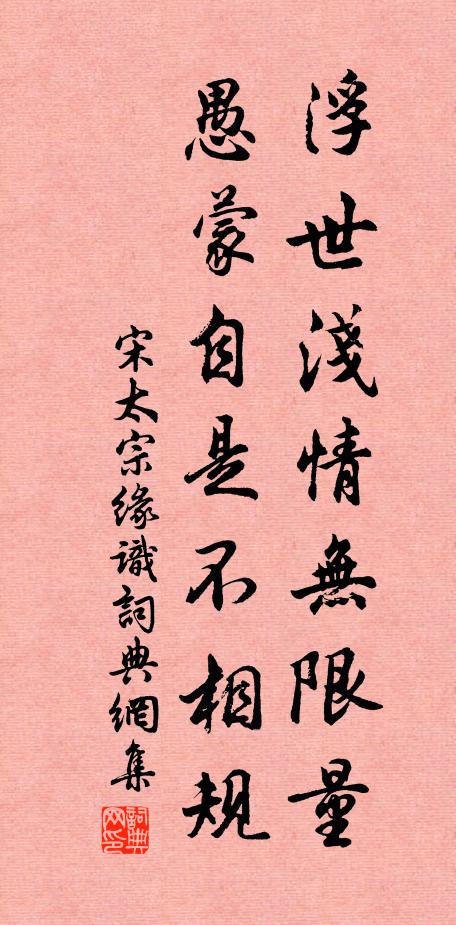 浮世淺情無限量
愚蒙自是不相規
宋太宗緣識詞典網集
詞典网印